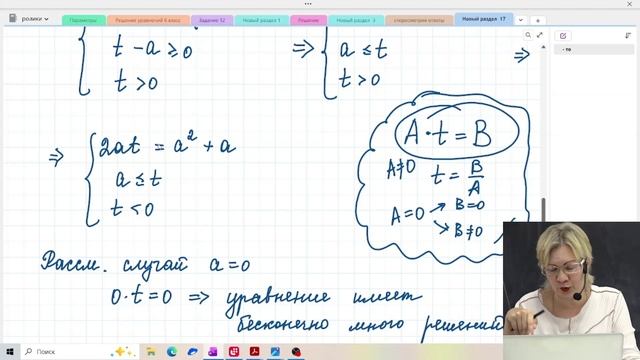 ролики
Параметры
Решение уравнений 6 класс
Задание 12
Новый раздел 1
Решение
Новый раздел 3
стереометрия ответы
Новый раздел 17
- то
t - a ≥ 0
t > 0
⇒
a ≤ t
t > 0
⇒
⇒
2at = a² + a
a ≤ t
t < 0
A · t = B
A ≠ 0 t = B/A
A = 0 → B = 0
↘ B ≠ 0
Рассм. случай a = 0
0 · t = 0 ⇒ уравнение имеет
бесконечно много решений
Поиск